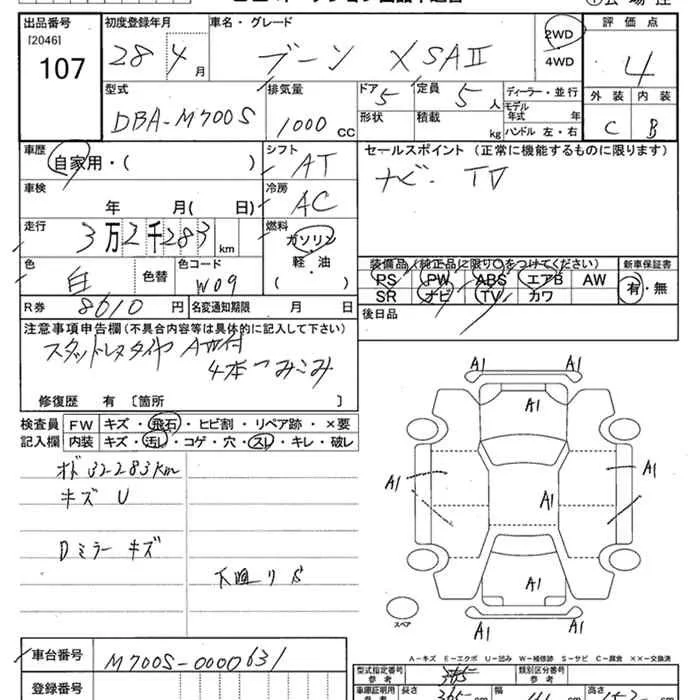 出品番号 初度登録年月 車名・グレード 2WD 評価点
[2046]
107 28年4月 ブーン XSAⅡ 4WD 4
型式 排気量 ドア 5 定員 5人 ディーラー・並行 外装 内装
DBA-M700S 1000cc 形状 積載 kg モデル年式 年 ハンドル 左・右 C B
車歴 シフト セールスポイント(正常に機能するものに限ります)
自家用・( ) AT ナビ TV
車検 冷房
年 月( 日) AC
走行 燃料
3万2千283km ガソリン
色 色替 色コード 軽・油 装備品(純正品に限り○をつけてください) 新車保証書
白 W09 ( ) PS PW ABS エアB AW 有・無
R券 8610円 名変通知期限 月 日 SR ナビ TV カワ
注意事項申告欄(不具合内容等は具体的に記入して下さい) 後日品
スタッドレスタイヤ AW付
4本つみこみ
修復歴 有〔箇所 〕
検査員 FW キズ・飛石・ヒビ割・リペア跡・×要
記入欄 内装 キズ・汚レ・コゲ・穴・スレ・キレ・破レ
オド 32283km
キズ U
Dミラーキズ
下廻りS
A1 A1
A1
A1 A1 A1
A1
A1 A1
スペア
A-キズ E-エクボ U-凹み W-補修跡 S-サビ C-腐食 ××-交換済
車台番号 M700S-0000631
登録番号
型式指定番号 参考 類別区分番号 参考
車庫証明用 参考 長さ 365 cm 幅 cm 高さ